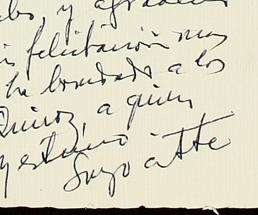 y agradece
felicitación muy
ha bondado a los
Quiroz, a quien
y estimo
Suyo atte